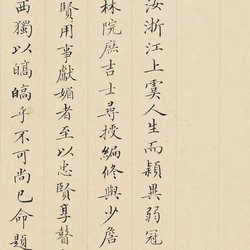 汝浙江上虞人生而頴異弱冠
林院庶吉士尋授編修與少詹
賢用事獻媚者至以忠賢享瞽
西獨以皜皜乎不可尚已命題